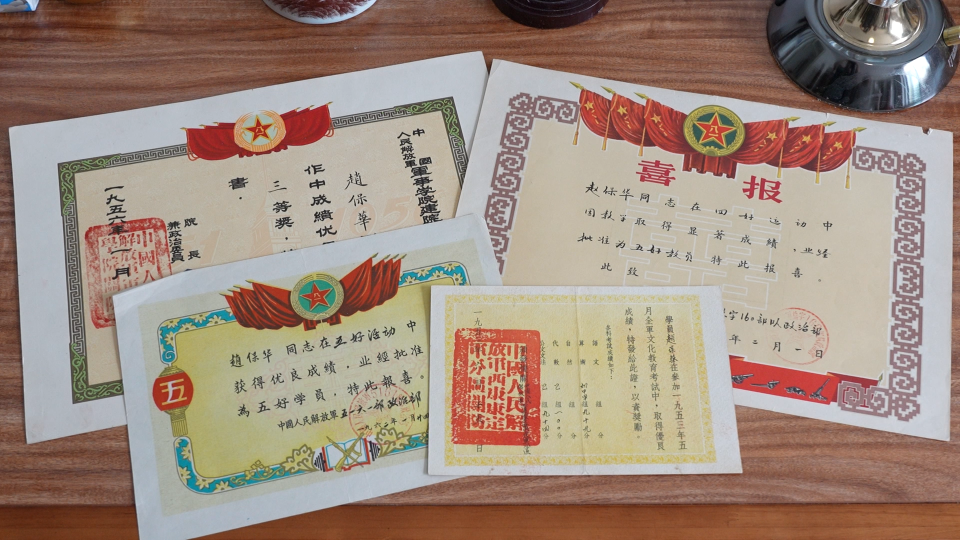 中國
人民解放軍軍事學院建院
趙保華
作中成績優
三等獎，
書．
院長
兼政治委員
一九五六年一月
喜报
赵保华同志在四好运动中
因教学取得显著成绩，业经
批准为五好教员特此报喜。
此致
字160部队政治部
年二月一日
趙保华同志在五好活动中
获得优良成绩，业經批准
為五好学員，特此報喜。
中國人民解放軍
五
學員趙保華在參加一九五三年五
月全軍文化教育考試中，取得優良
成績，特發給此證，以資獎勵。
各科考試成績如下：
語文 組 分
算術 初中常組九十九分
自然 組 分
代數 已 組一〇〇分
已 組九十四分
中國人民解
放軍西康康定
軍分區